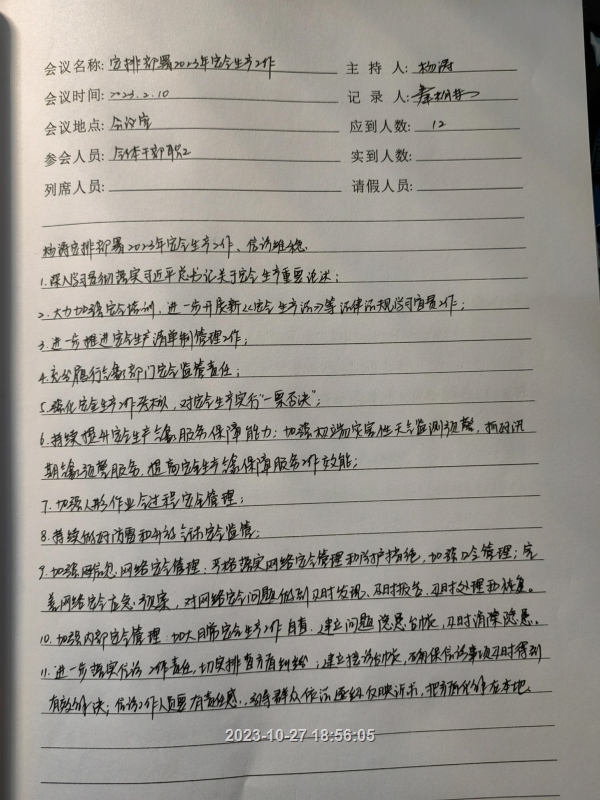 会议名称: 安排部署2023年安全生产工作 主 持 人: 杨涛
会议时间: 2023.2.10 记 录 人:
会议地点: 会议室 应到人数: 12
参会人员: 全体干部职工 实到人数:
列席人员: 请假人员:
杨涛安排部署2023年安全生产工作、信访维稳.
1.深入学习贯彻落实习近平总书记关于安全生产重要论述;
2.大力加强安全培训,进一步开展新《安全生产法》等法律法规学习宣贯工作;
3.进一步推进安全生产清单制管理工作;
4.充分履行气象部门安全监管责任;
5.强化安全生产工作考核,对安全生产实行“一票否决”;
6.持续提升安全生产气象服务保障能力:加强极端灾害性天气监测预警,抓好汛
期气象预警服务,提高安全生产气象保障服务工作效能;
7.加强人影作业全过程安全管理;
8.持续做好防雷和升放气球安全监管;
9.加强网信息网络安全管理:严格落实网络安全管理和防护措施,加强口令管理;完
善网络安全应急预案,对网络安全问题做到及时发现、及时报告、及时处理和恢复。
10.加强内部安全管理.加大日常安全生产工作自查,建立问题隐患台帐,及时消除隐患。
11.进一步落实信访工作责任,切实排查矛盾纠纷;建立接访台帐,确保信访事项及时得到
有效解决;信访工作人员要有责任感,引导群众依法逐级反映诉求,把矛盾化解在本地。
2023-10-27 18:56:05